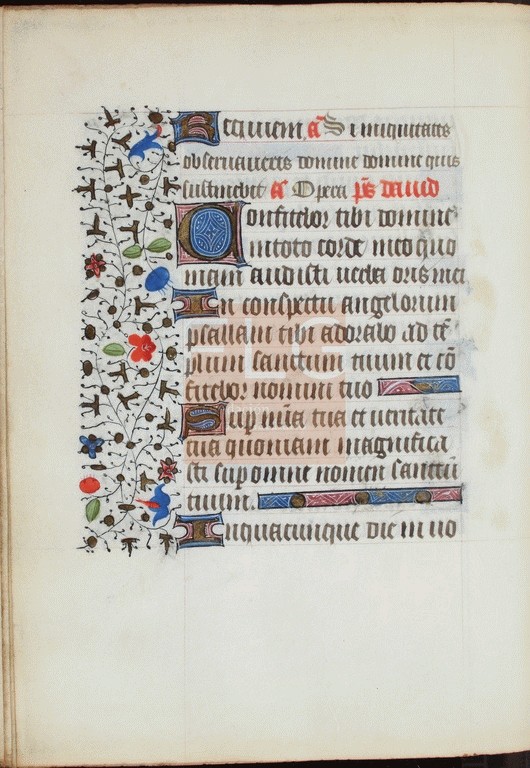 Requiem. a᷍ Si iniquitates
observaveris domine domine quis
sustinebit a᷍ Opera ps̄ david
Confitebor tibi domine
in toto corde meo quo
niam audisti verba oris mei
In conspectu angelorum
psallam tibi adorabo ad tē
plum sanctum tuum et cō
fitebor nomini tuo
Sup mīa tua et veritate
tua quoniam magnifica
sti sup omne nomen sanctū
tuum.
Inquacunque die in vo